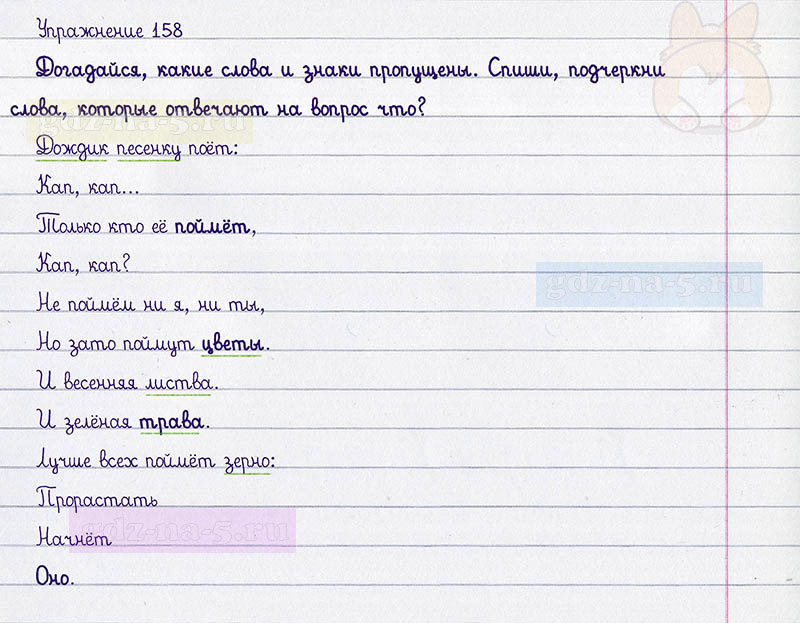 Упражнение 158
Догадайся, какие слова и знаки пропущены. Спиши, подчеркни
слова, которые отвечают на вопрос что?
gdz-na-5.ru
Дождик песенку поёт:
Кап, кап...
Только кто её поймёт,
Кап, кап?
gdz-na-5.ru
Не поймём ни я, ни ты,
Но зато поймут цветы.
И весенняя листва.
И зелёная трава.
Лучше всех поймёт зерно:
Прорастать
gdz-na-5.ru
Начнёт
Оно.